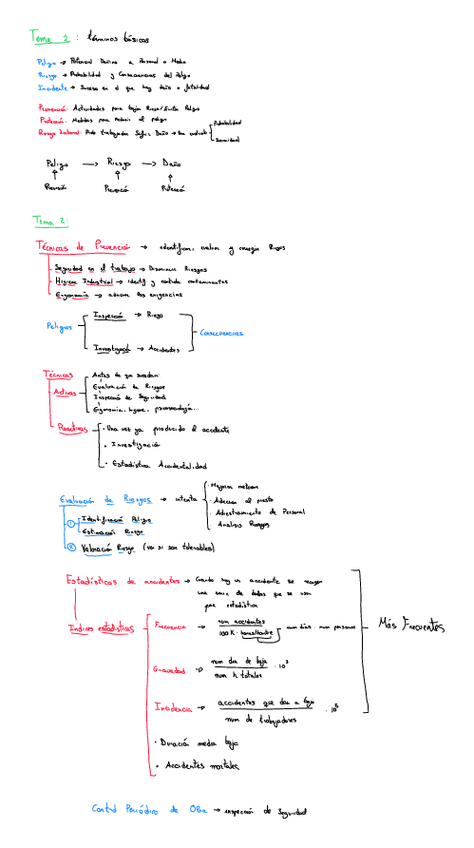 Tema 1: términos básicos
Peligro → Potencial Daño a Personal o Medio
Riesgo → Probabilidad y Consecuencias del Peligro
Incidente → Suceso en el que hay daño o fatalidad
Prevención: Actividades para bajar Riesgo/Evitar Peligro
Protección: Medidas para reducir el peligro
Riesgo Laboral: trabajador Sufra Daño → Se evalúa
Probabilidad
Severidad
Peligro → Riesgo → Daño
Previsión Prevenció Protecció
Tema 2:
Técnicas de Prevención → identifican, evalúan y corrigen Riesgos
Seguridad en el trabajo → Disminuir Riesgos
Higiene Industrial → identif y controla contaminantes
Ergonomía → adecua las exigencias
Peligros
Inspecció → Riesgo
Investigació → Accidentes
Consecuencias
Técnicas
Activas
Antes de que sucedan:
Evaluación de Riesgos
Inspecció de Seguridad
Ergonomía, higiene, psicosociología...
Reactivas
• Una vez ya producido el accidente
• Investigación
• Estadística Accidentalidad
Evaluación de Riesgos → intenta
• Mejorar
• Adecuar el puesto
• Adiestramiento de Personal
• Análisis Riesgos
① Identificació Peligro
Estimación Riesgo
② Valoración Riesgo (ver si son tolerables)
Estadísticas de accidentes → Cuando hay un accidente se recogen
una serie de datos que se usan
para estadística
Índices estadísticos
Frecuencia → num accidentes
100K · horas/hombre num días · num personas
Más Frecuentes
Gravedad → num días de baja / num h totales · 10³
Incidencia → accidentes que dan a baja / num de trabajadores · 10⁵
• Duració media baja
• Accidentes mortales
Control Periódico de Obra → inspección de Seguridad